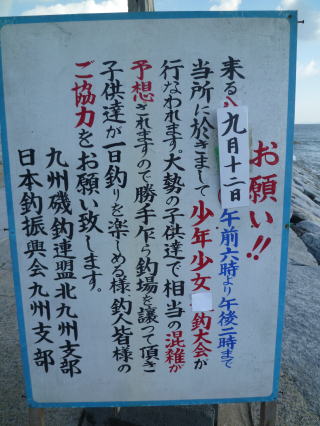 お願い!!
来る九月十二日午前六時より午後二時まで
当所に於きまして少年少女釣大会が
行なわれます。大勢の子供達で相当の混雑が
予想されますので勝手乍ら釣場を譲って頂き
子供達が一日釣りを楽しめる様釣人皆様の
ご協力をお願い致します。
九州磯釣連盟北九州支部
日本釣振興会九州支部